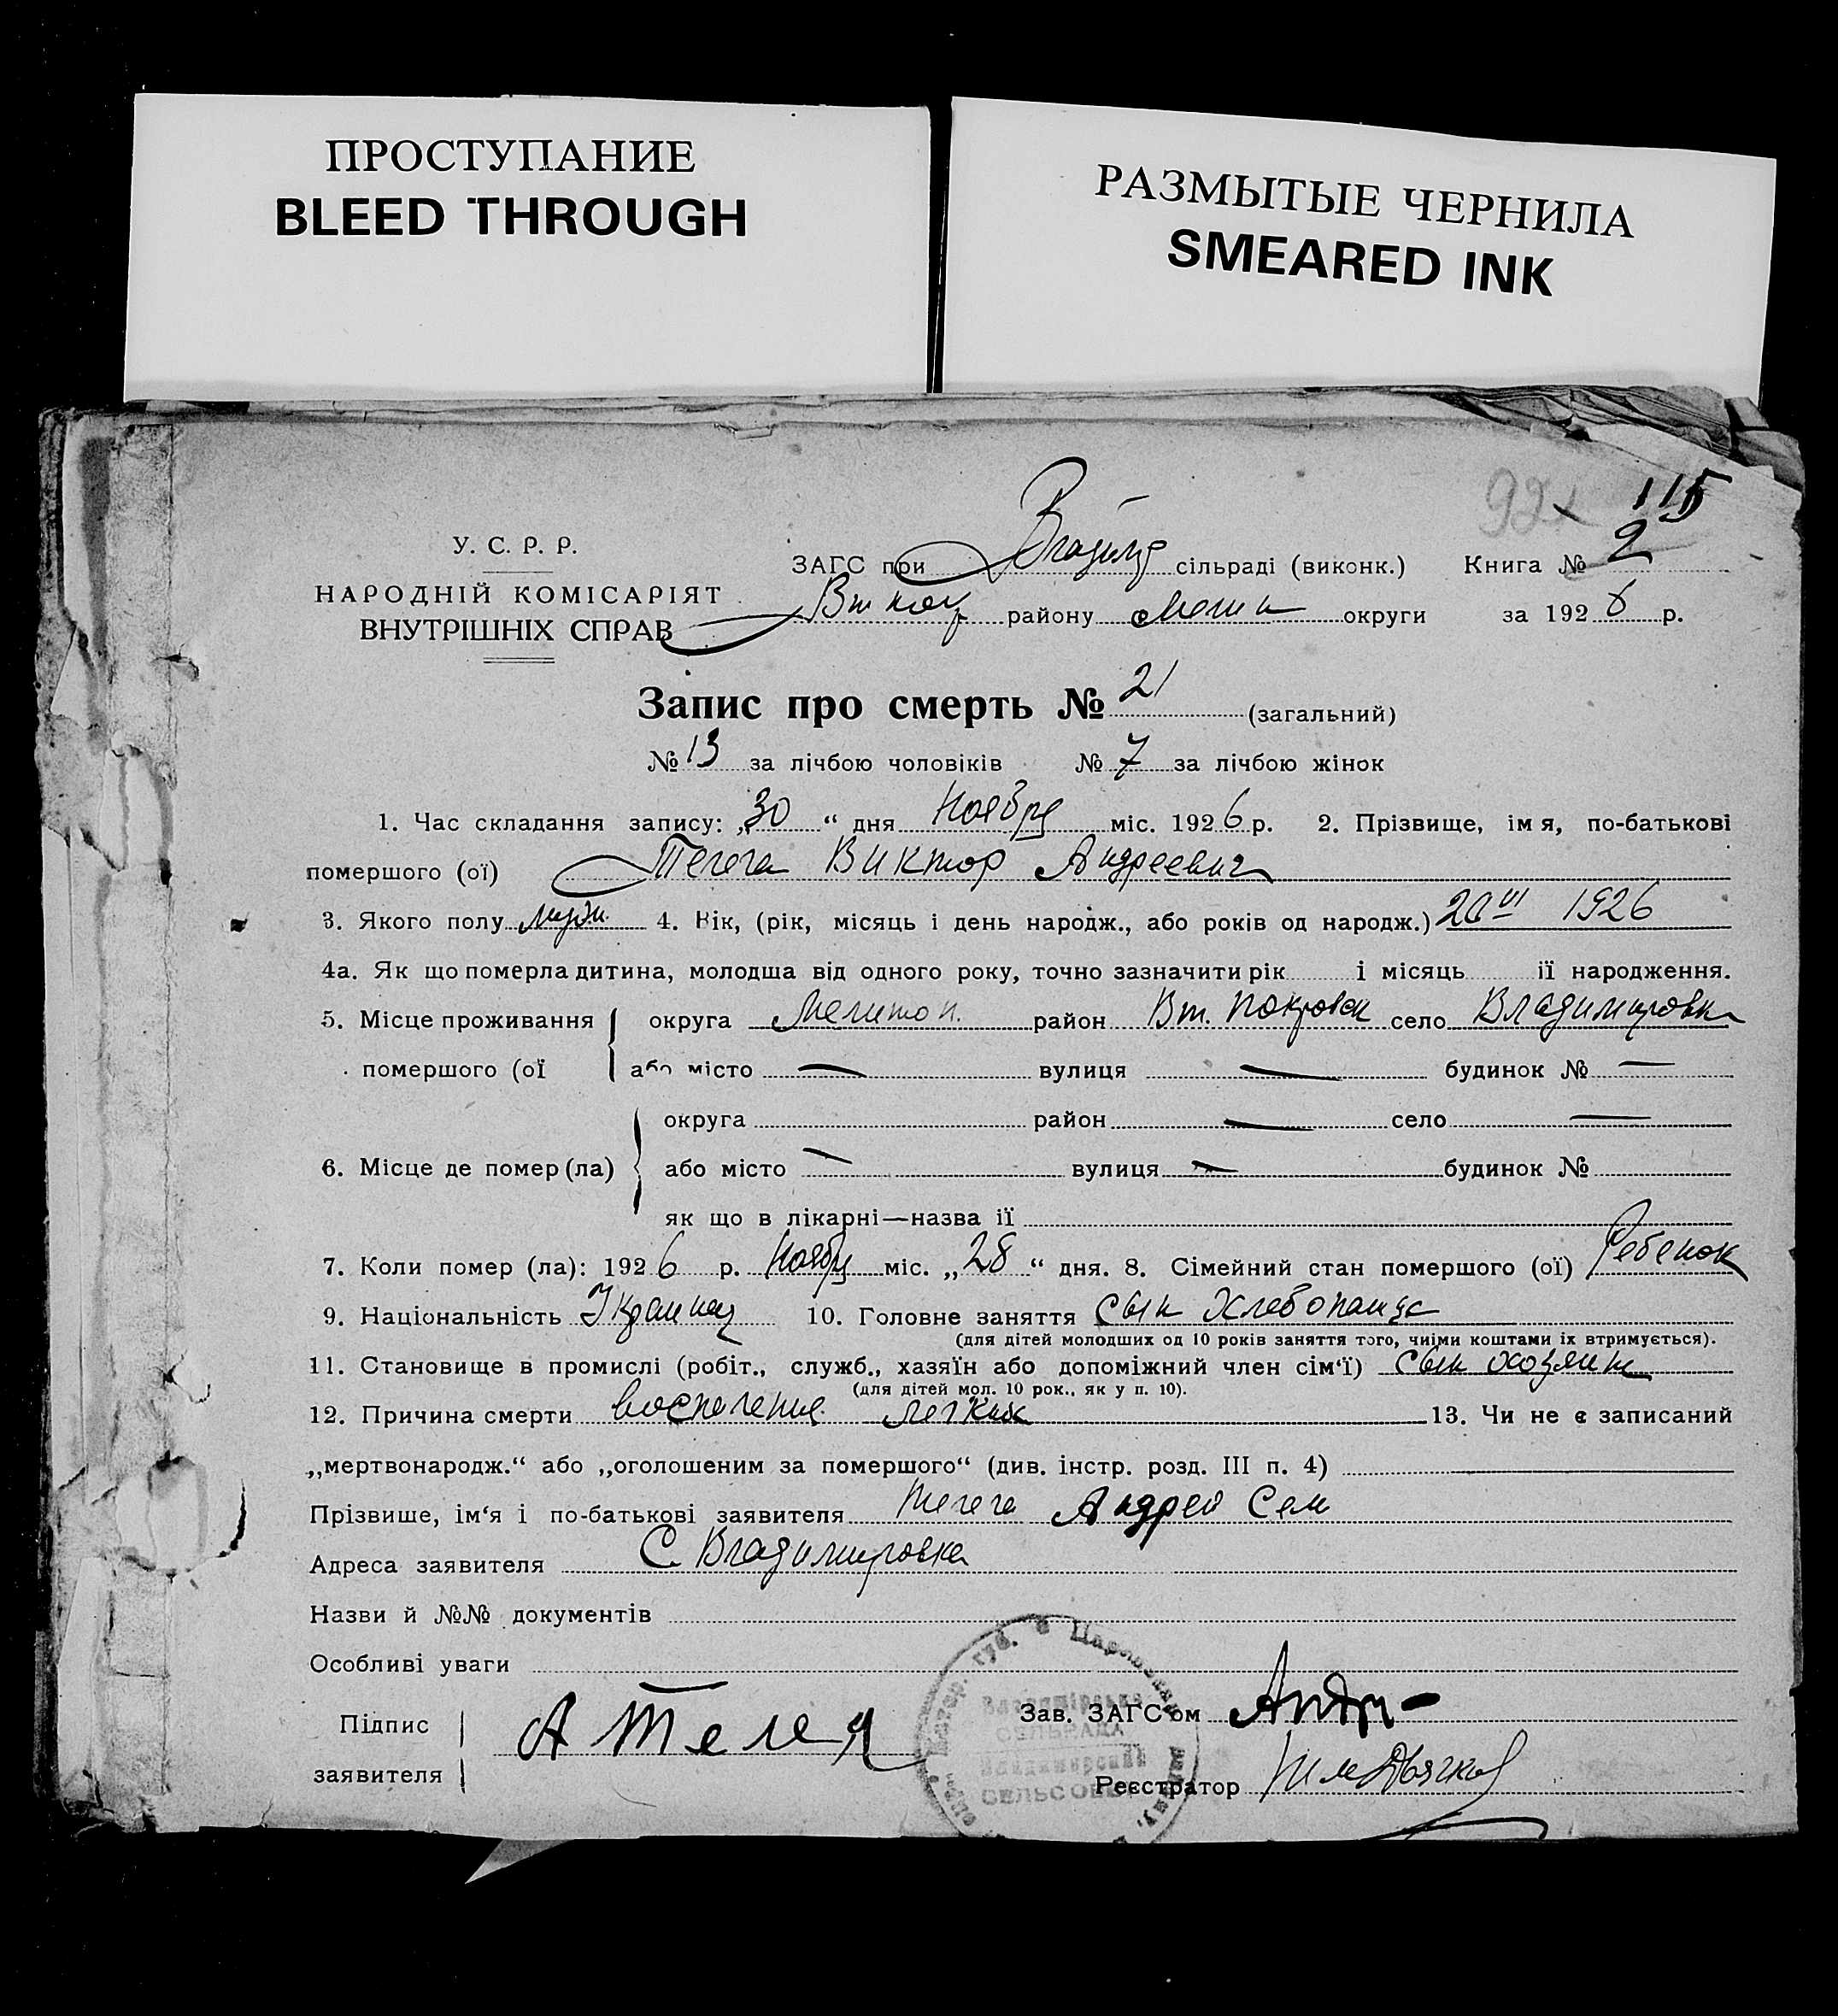 ПРОСТУПАНИЕ
BLEED THROUGH
РАЗМЫТЫЕ ЧЕРНИЛА
SMEARED INK
92
115
У. С. Р. Р.
НАРОДНІЙ КОМІСАРІЯТ
ВНУТРІШНІХ СПРАВ
ЗАГС при сільраді (виконк.) Книга № 2
району округи за 1926 р.
Запис про смерть № 21 (загальний)
№ 13 за лічбою чоловіків № 7 за лічбою жінок
1. Час складання запису: „30“ дня Ноября міс. 1926 р. 2. Прізвище, імя, по-батькові
помершого (ої) Виктор Андреевич
3. Якого полу муж. 4. Вік, (рік, місяць і день народж., або років од народж.) 1926
4а. Як що померла дитина, молодша від одного року, точно зазначити рік і місяць її народження.
5. Місце проживання округа Мелитоп. район Вт. Покровск село Владимировка
помершого (ої або місто — вулиця — будинок № —
округа район — село —
6. Місце де помер (ла) або місто — вулиця — будинок №
як що в лікарні—назва її
7. Коли помер (ла): 1926 р. Ноября міс. „28“ дня. 8. Сімейний стан помершого (ої) Ребенок
9. Національність 10. Головне заняття Сын Хлебопашца
(для дітей молодших од 10 років заняття того, чиіми коштами іх втримується).
11. Становище в промислі (робіт., служб., хазяїн або допоміжний член сім‘ї) сын хозяина
(для дітей мол. 10 рок., як у п. 10).
12. Причина смерти воспаление легких 13. Чи не є записаний
„мертвонародж.“ або „оголошеним за помершого“ (див. інстр. розд. III п. 4)
Прізвише, ім‘я і по-батькові заявителя Андрей Сем
Адреса заявителя С. Владимировка
Назви й №№ документів
Особливі уваги
Підпис
заявителя
Зав. ЗАГС‘ом
Реєстратор
СЕЛЬРАДА
СЕЛЬСОВЕТ